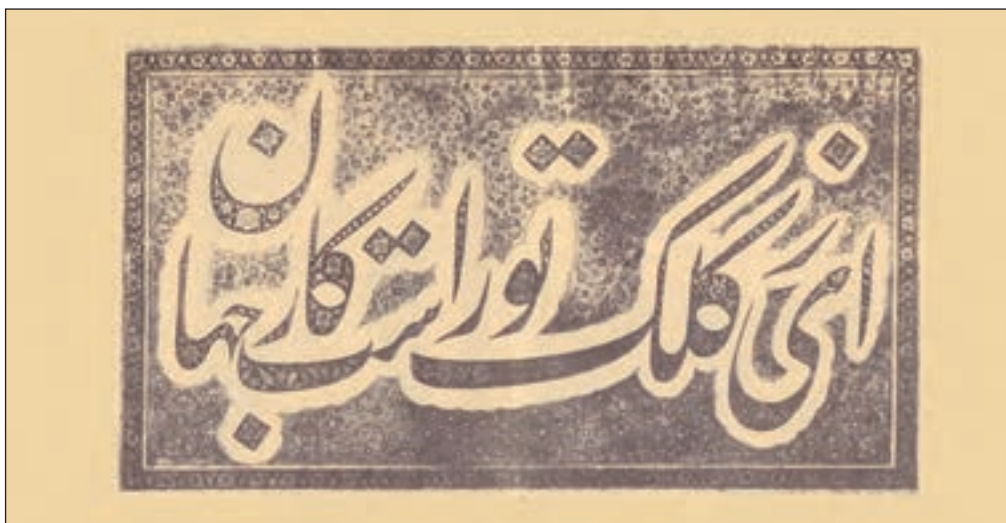 ای ز کلک تو راست کار جهان